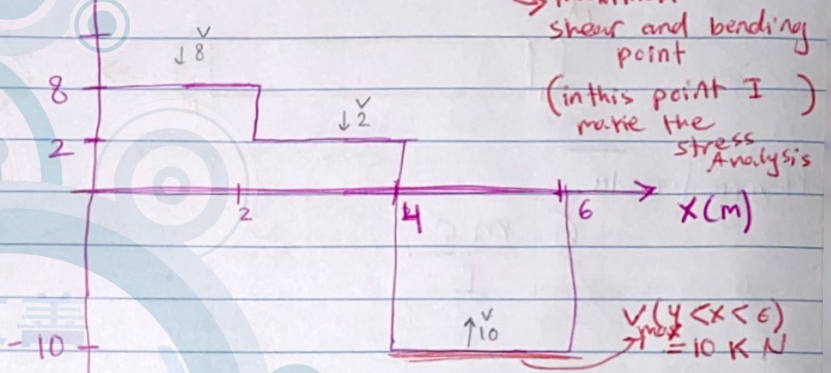 shear and bending
point
(in this point I)
make the
stress
Analysis
V
↓8
8
V
↓2
2
2
4
6
X(m)
V
↑10
-10
V max (4<x<6)
= 10 KN